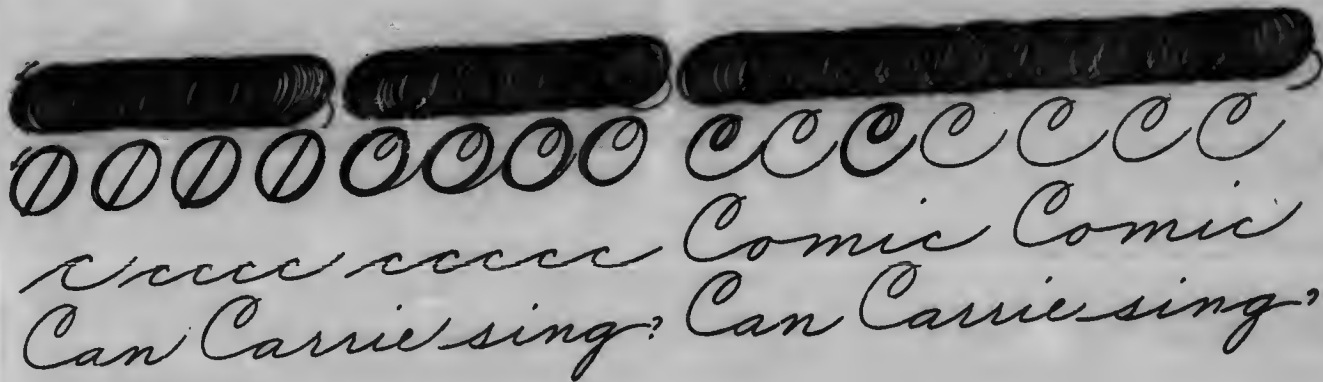 O O O O O O O O C C C C C C C
c c c c c c c c c c Comic Comic
Can Carrie sing? Can Carrie sing?